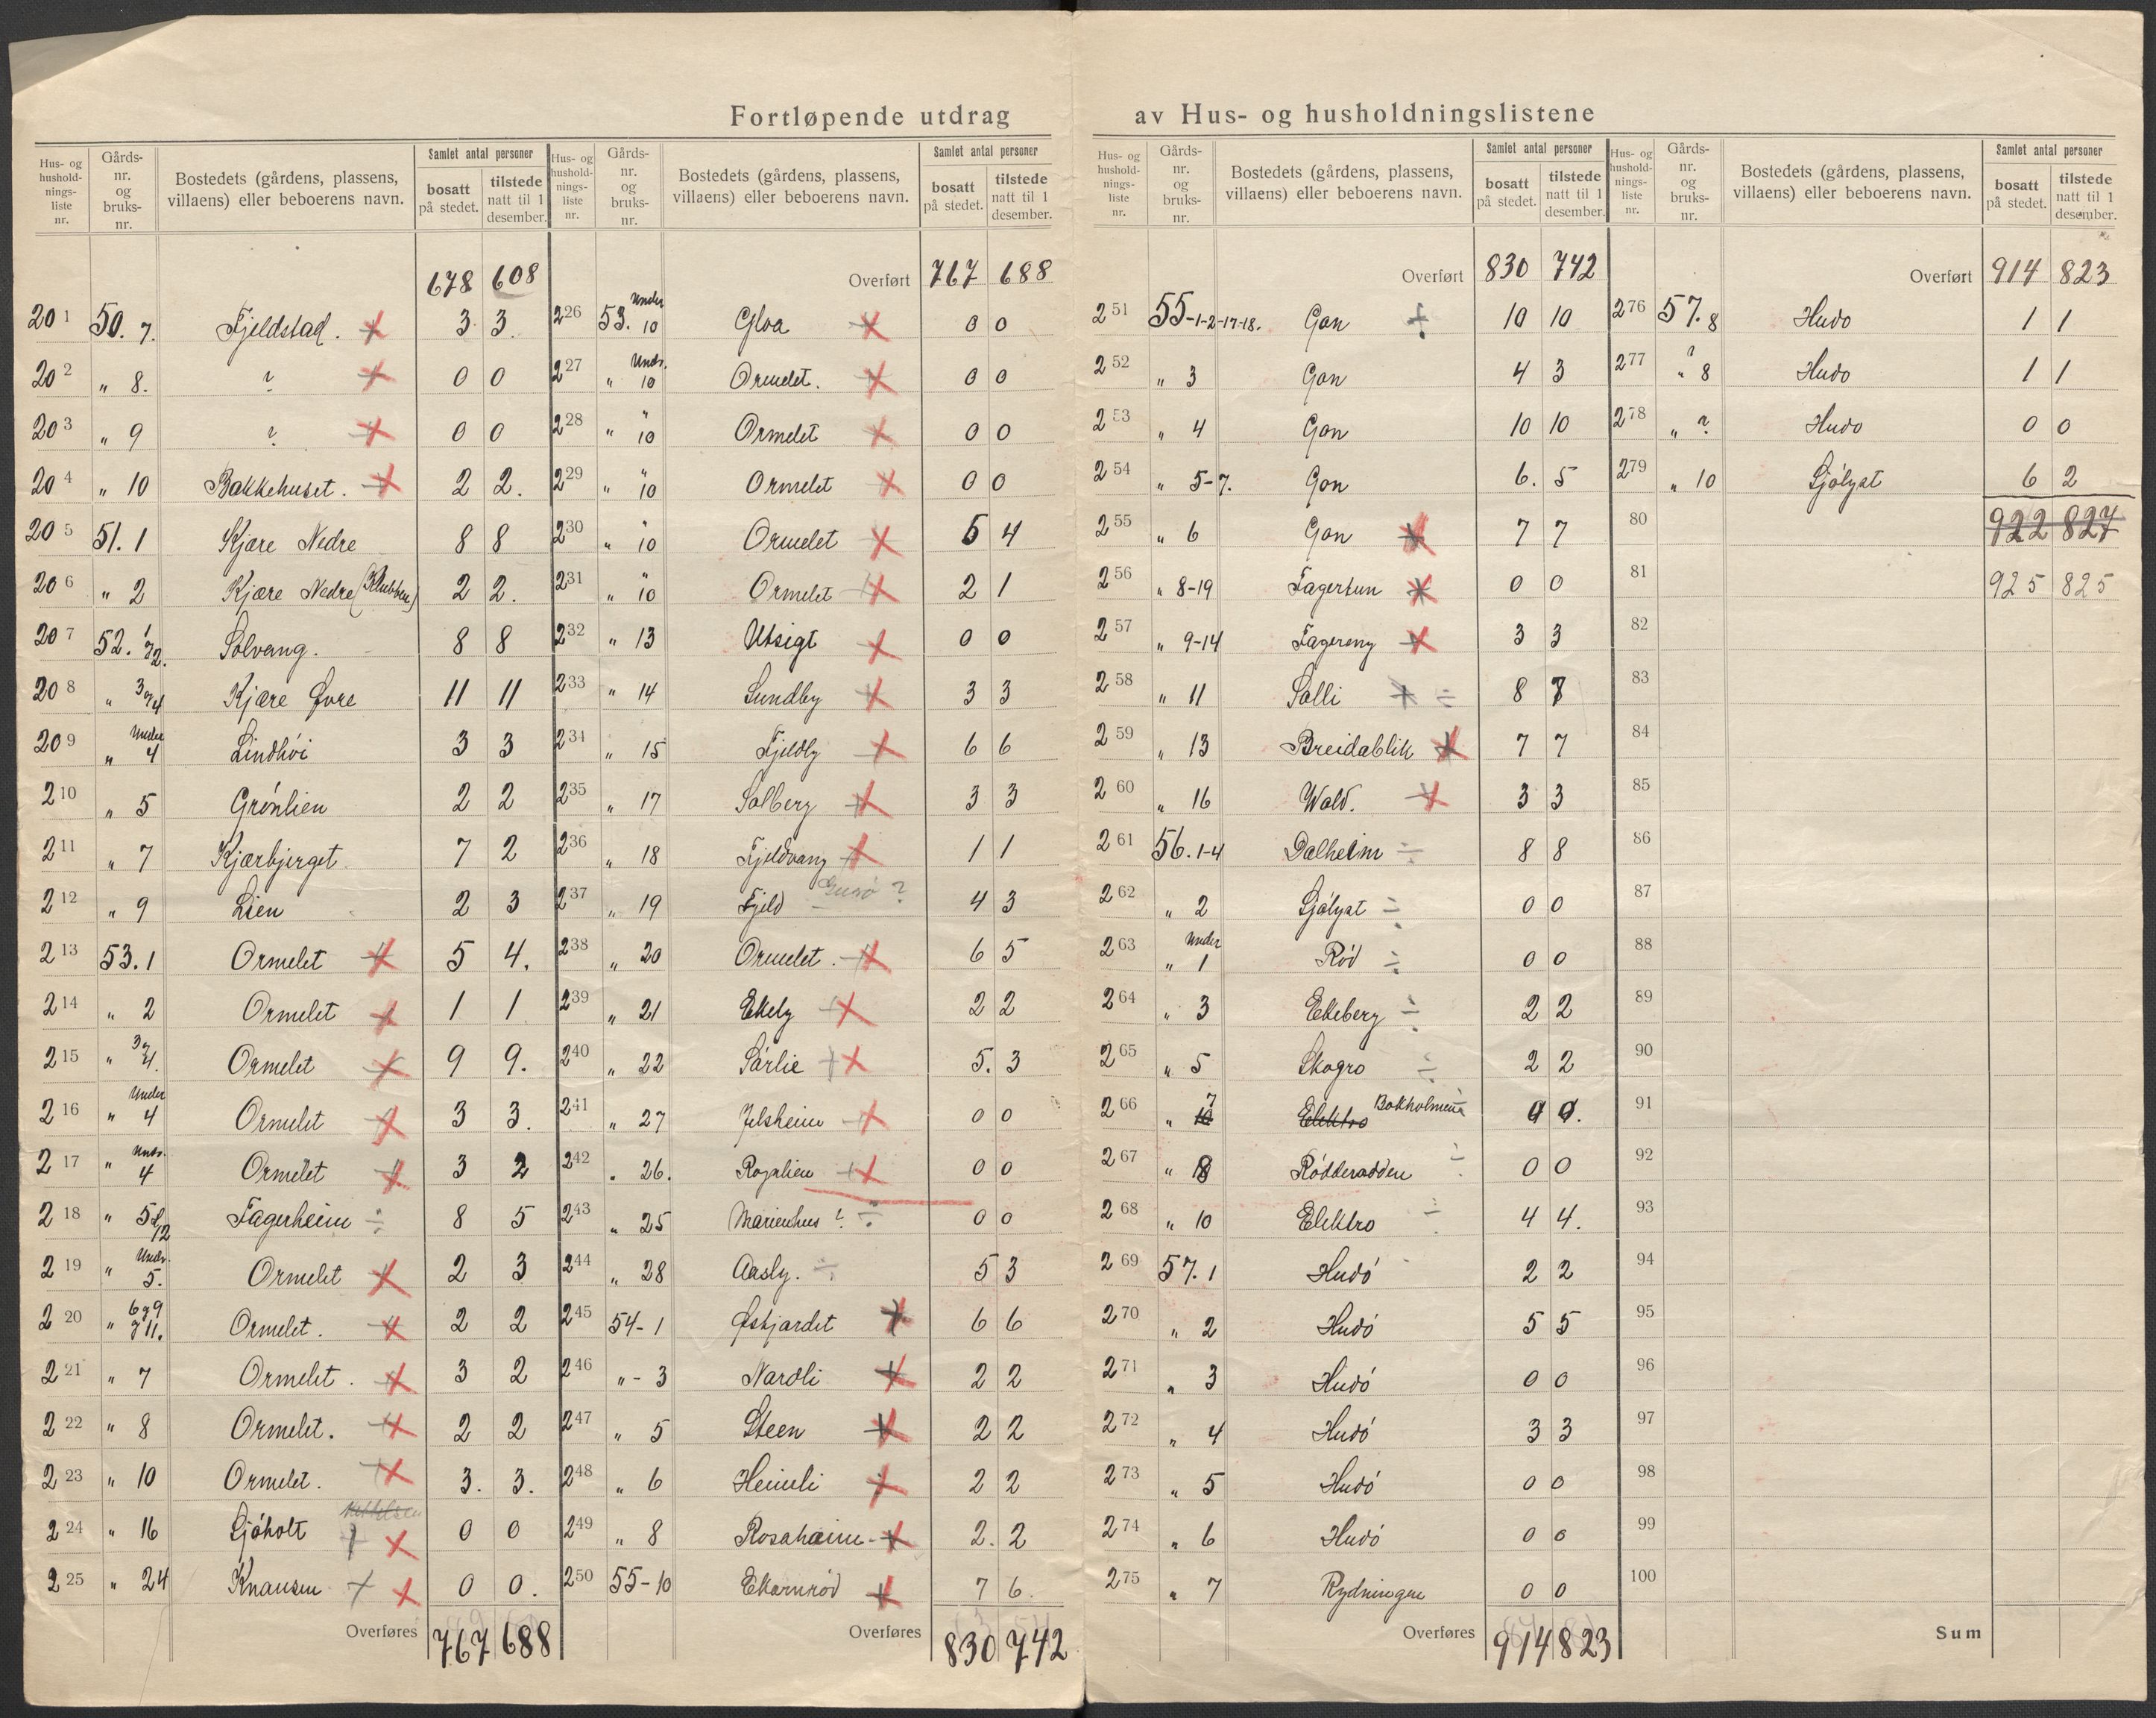 Fortløpende utdrag av Hus- og husholdningslistene
Hus- og hushold- nings- liste nr. Gårds- nr. og bruks- nr. Bostedets (gårdens, plassens, villaens) eller beboerens navn. Samlet antal personer bosatt på stedet. tilstede natt til 1 desember.
678 608
201 50. 7. Fjeldstad. 3 3.
202 " 8. ? 0 0
203 " 9 ? 0 0
204 " 10 Bakkehuset. 2 2.
205 51. 1 Kjære Nedre 8 8
206 " 2 Kjære Nedre (Klubben) 2 2.
207 52. 1 2. Solvang. 8 8
208 " 3 og 4 Kjære Øvre 11 11
209 " Under 4 Lindhöi 3 3
210 " 5 Grönlien 2 2
211 " 7 Kjærbjerget. 7 2
212 " 9 Lien 2 3
213 53. 1 Ormelet 5 4.
214 " 2 Ormelet 1 1
215 " 3 4. Ormelet 9 9.
216 " Under 4 Ormelet 3 3.
217 " Und. 4 Ormelet 3 2
218 " 5 12 Fagerheim ÷ 8 5
219 " Und. 5. Ormelet 2 3
220 " 6 9 11. Ormelet. 2 2
221 " 7 Ormelet. 3 2
222 " 8 Ormelet. 2 2
223 " 10 Ormelet. 3. 3.
224 " 16 Sjöholt 0 0
225 " 24 Knausen 0 0.
Overføres 767 688
Hus- og hushold- nings- liste nr. Gårds- nr. og bruks- nr. Bostedets (gårdens, plassens, villaens) eller beboerens navn. Samlet antal personer bosatt på stedet. tilstede natt til 1 desember.
Overført 767 688
226 53. Under 10 Gloa 0 0
227 " Und. 10 Ormelet. 0 0
228 " " 10 Ormelet 0 0
229 " " 10 Ormelet 0 0
230 " " 10 Ormelet 5 4
231 " " 10 Ormelet 2 1
232 " 13 Utsigt 0 0
233 " 14 Sundby 3 3
234 " 15 Fjeldly 6 6
235 " 17 Solberg 3 3
236 " 18 Fjeldvang 1 1
237 " 19 Fjeld ? 4 3
238 " 20 Ormelet. 6 5
239 " 21 Ekely 2 2
240 " 22 Sörlie 5. 3
241 " 27 Jelsheim 0 0
242 " 26. Roalien 0 0
243 " 25 Marienhus ? ÷ 0 0
244 " 28 Aasly. ÷ 5 3
245 54-1 Østjordet 6 6
246 "-3 Nardli 2 2
247 " 5 Steen 2 2
248 " 6 Heimli 2 2
249 " 8 Rosaheim 2. 2
250 55-10 Ekornröd 7 6.
Overføres 830 742
Hus- og hushold- nings- liste nr. Gårds- nr. og bruks- nr. Bostedets (gårdens, plassens, villaens) eller beboerens navn. Samlet antal personer bosatt på stedet. tilstede natt til 1 desember.
Overført 830 742
251 55-1-2-17-18. Gon 10 10
252 " 3 Gon 4 3
253 " 4 Gon 10 10
254 " 5-7. Gon 6. 5
255 " 6 Gon 7 7
256 " 8-19 Fagertun 0 0
257 " 9-14 Fagereng 3 3
258 " 11 Solli ÷ 8 7
259 " 13 Breidablik 7 7
260 " 16 Wold. 3 3
261 56. 1-4 Dalheim ÷ 8 8
262 " 2 Sjölyst ÷ 0 0
263 " Under 1 Röd ÷ 0 0
264 " 3 Ekeberg ÷ 2 2
265 " 5 Skogro ÷ 2 2
266 " 7 Elektro Bokholmen 0 0.
267 " 8 Rödderadden ÷ 0 0
268 " 10 Elektro ÷ 4 4.
269 57. 1 Hudö 2 2
270 " 2 Hudö 5 5
271 " 3 Hudö 0 0
272 " 4 Hudö 3 3
273 " 5 Hudö 0 0
274 " 6 Hudö 0 0
275 " 7 Rydningen 0 0
Overføres 914 823
Hus- og hushold- nings- liste nr. Gårds- nr. og bruks- nr. Bostedets (gårdens, plassens, villaens) eller beboerens navn. Samlet antal personer bosatt på stedet. tilstede natt til 1 desember.
Overført 914 823
276 57. 8 Hudo 1 1
277 ? " 8 Hudo 1 1
278 " ? Hudo 0 0
279 " 10 Sjölyst 6 2
80 922 827
81 925 825
82
83
84
85
86
87
88
89
90
91
92
93
94
95
96
97
98
99
100
Sum